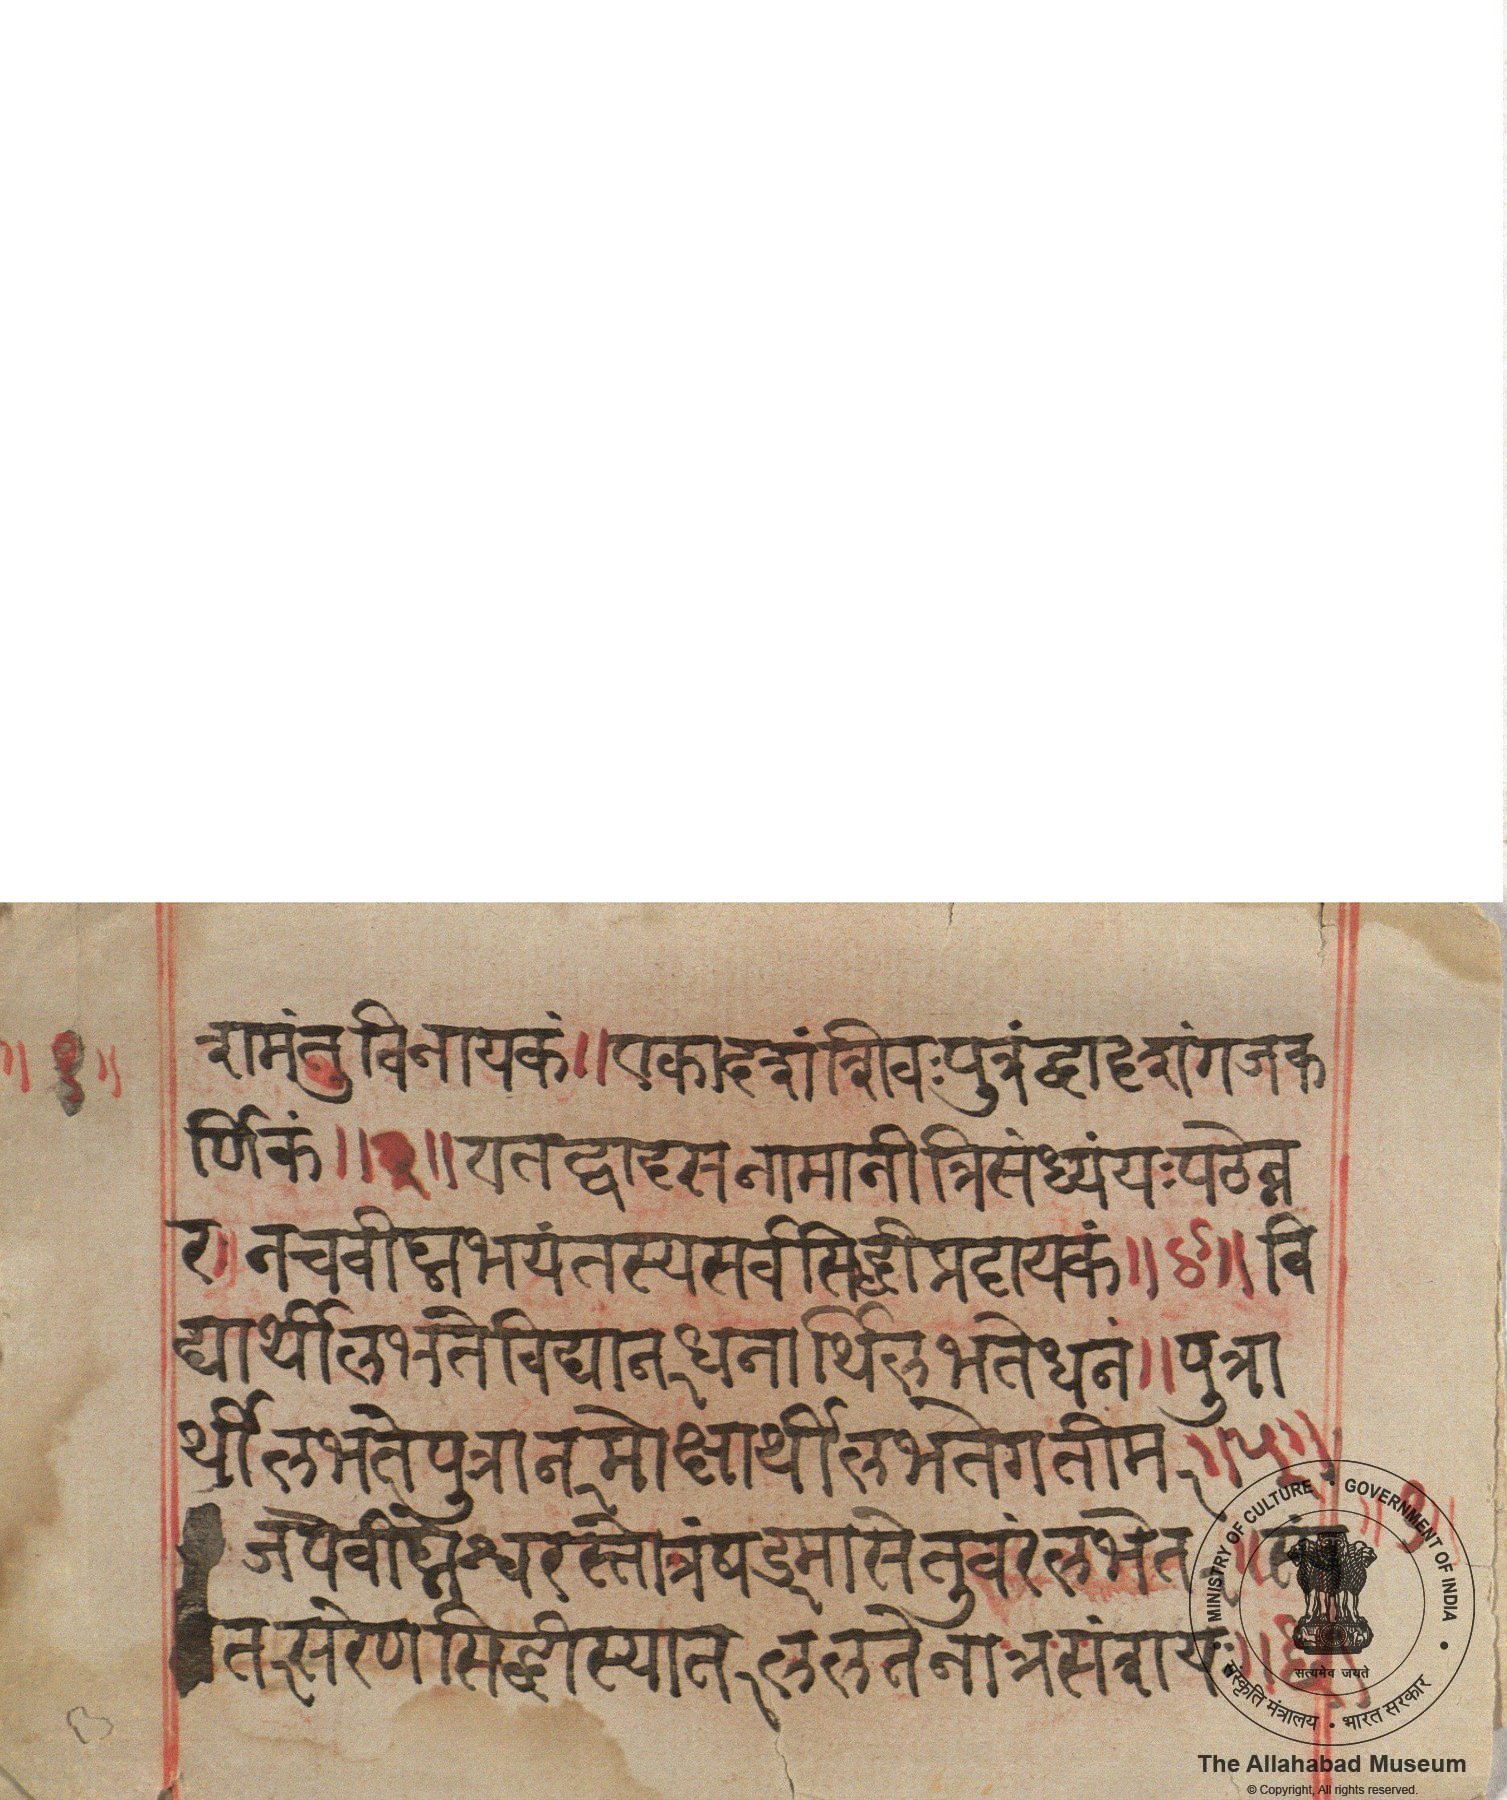 रामंतु विनायकं॥ एकादशं शिवःपुत्रं द्वादशं गजक
र्णिकं ॥३॥ यत द्वादस नामानी त्रिसंध्यं यः पठेन्न
र॥ न च वीघ्न भयं तस्य सर्व सिद्धी प्रदायकं ॥४॥ वि
द्यार्थी लभते विद्यान् धनार्थि लभते धनं॥ पुत्रा
र्थी लभते पुत्रान् मोक्षार्थी लभते गतीम् ॥५॥
जपे वीघ्नेश्वर स्तोत्रं षड्मासे तु वरं लभेत्
त्सरेण सिद्धी स्यात् ललते नात्र संशयः ॥६॥
॥१॥
॥१॥
MINISTRY OF CULTURE • GOVERNMENT OF INDIA
सत्यमेव जयते
संस्कृति मंत्रालय • भारत सरकार
The Allahabad Museum
© Copyright, All rights reserved.